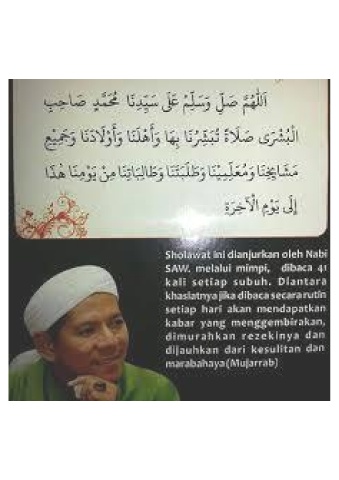 اَللّٰهُمَّ صَلِّ وَسَلِّمْ عَلَى سَيِّدِنَا مُحَمَّدٍ صَاحِبِ
الْبُشْرَى صَلَاةً تُبَشِّرُنَا بِهَا وَأَهْلَنَا وَأَوْلَادَنَا وَجَمِيْعِ
مَشَايِخِنَا وَمُعَلِّمِيْنَا وَطَلَبَتَنَا وَطَالِبَاتِنَا مِنْ يَوْمِنَا هٰذَا
اِلَى يَوْمِ الْآخِرَةِ
Sholawat ini dianjurkan oleh Nabi
SAW. melalui mimpi, dibaca 41
kali setiap subuh. Diantara
khasiatnya jika dibaca secara rutin
setiap hari akan mendapatkan
kabar yang menggembirakan,
dimurahkan rezekinya dan
dijauhkan dari kesulitan dan
marabahaya (Mujarrab)